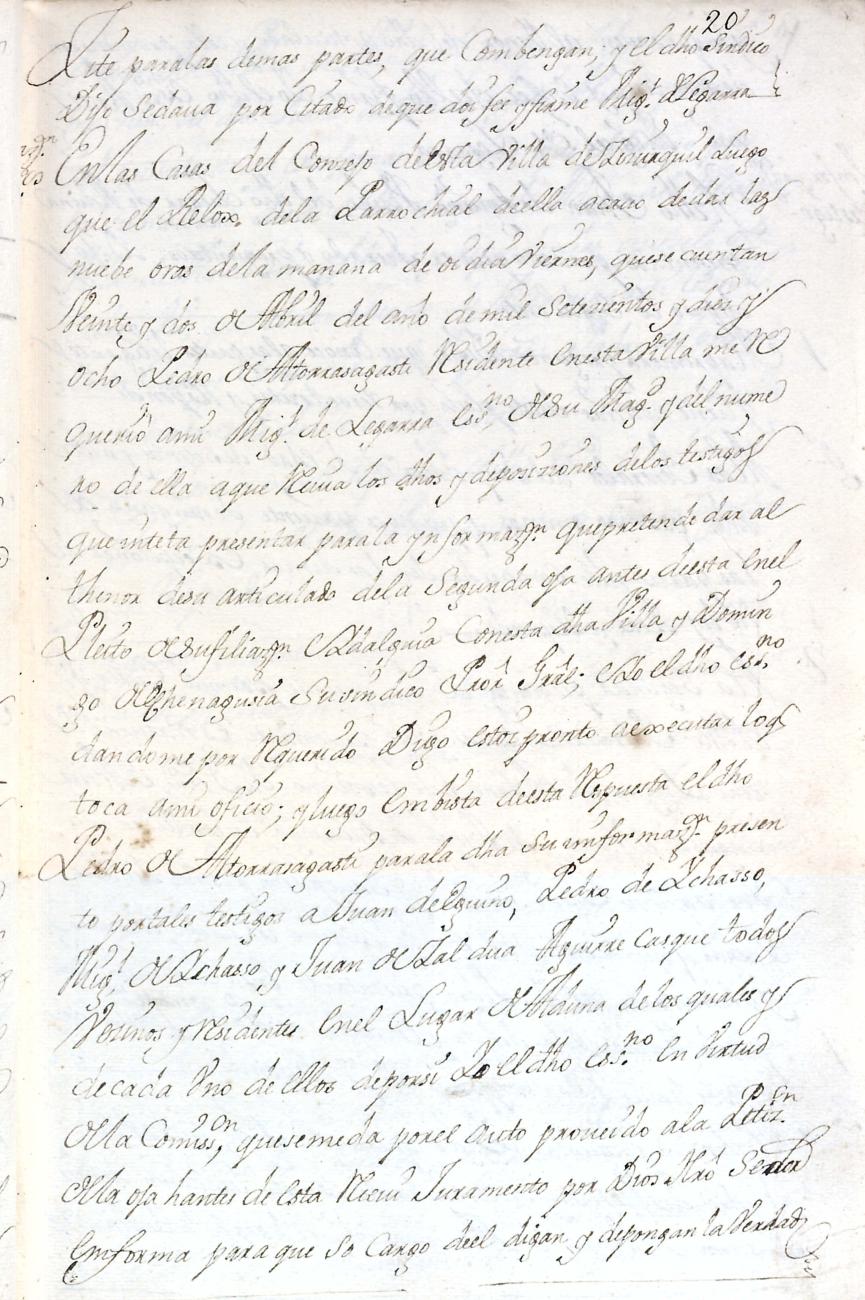 20
Lite para las demas partes, que Combengan; y el dho Sindico
Dijo Sedava por Citado de que doi fee y firme Migl. de Legarra
En las Casas del Conzejo de Esta Villa de Zizurquil Luego
que el Relox, de la Parrochial de ella acavo de dar las
nuebe oras de la manana de oi dia Viernes, que se cuentan
Veinte y dos de Abril del año de mil Setezientos y diez y
ocho Pedro de Atorrasagasti Residente En esta Villa me Re
querio a mi Migl. de Legarra Essno de Su Magd. y del nume
ro de ella a que Reciva los dhos y deposiziones de los testigos
que inteta presentar para la ynformazn. que pretende dar al
thenor de su articulado de la Segunda oja antes de esta En el
Pleito de Su filiazn. Hidalguia Con esta dha Villa y Domin
go de Echenagusia Su sindico Pror. Gral; e Yo el dho essno
dandome por Requerido Digo estoi pronto a executar lo q
toca a mi oficio; y luego En bista de esta Repuesta el dho
Pedro de Atorrasagasti para la dha Su ynformazn. presen
to por tales testigos a Juan de Eguino, Pedro de Ychasso,
Migl. de Ychasso y Juan de Zaldua Aguirre Casque todos
Vezinos y residentes En el Lugar de Alduna de los quales y
de cada Uno de ellos de por si Yo el dho essno En Virtud
de la Comisson, que se me da por el Auto proveido a la Petizn.
de la oja hantes de esta Reciui Juramento por Dios Nro Señor
En forma para que So Cargo de el digan y depongan la Verdad